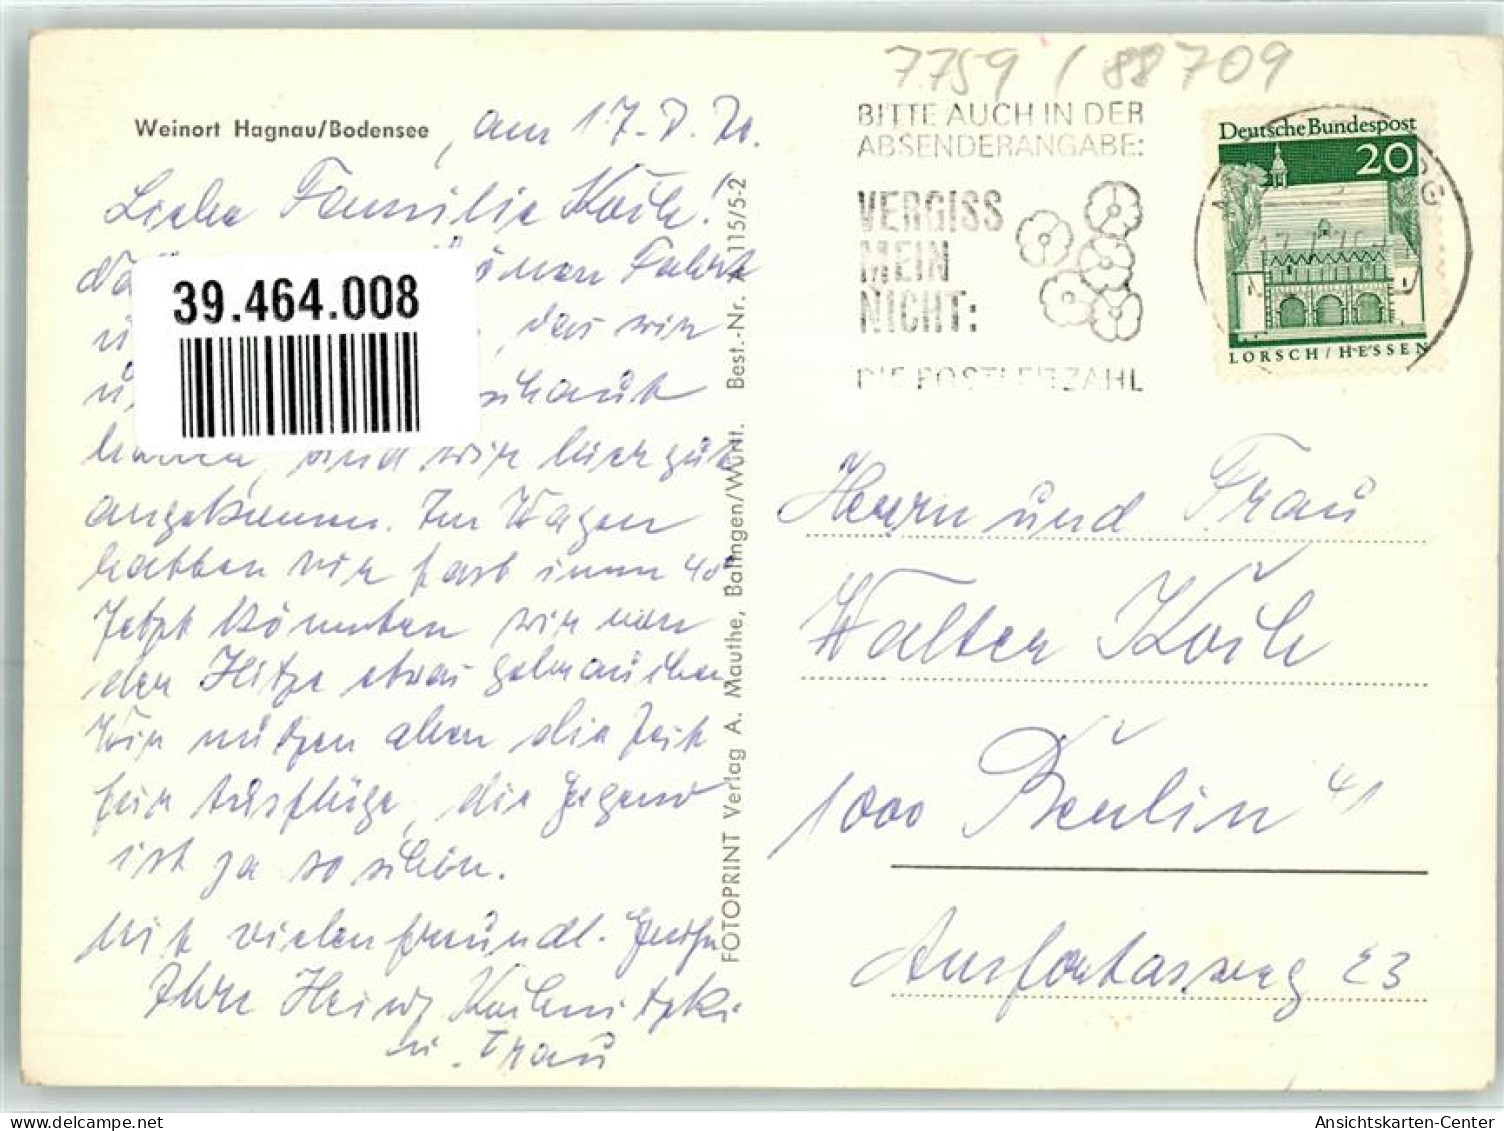 7759 / 88709
Weinort Hagnau/Bodensee, am 17.7.70.
Liebe Familie Koch!
Fahrt
, das wir
haben, sind wir hier gut
angekommen. Im Wagen
hatten wir fast immer 40°
Jetzt könnten wir von
der Hitze etwas gebrauchen
Wir nützen aber die Zeit
für Ausflüge, die Gegend
ist ja so schön.
Mit vielen freundl. Grüßen
Ihre Heinz
u. Frau
39.464.008
FOTOPRINT Verlag A. Mauthe, Balingen/Württ. Best.-Nr. A 115/5-2
BITTE AUCH IN DER
ABSENDERANGABE:
VERGISS
MEIN
NICHT:
DIE POSTLEITZAHL
Deutsche Bundespost
20
LORSCH/HESSEN
Herrn und Frau
Walter Koch
1000 Berlin 41
23
oldthing.de
Ansichtskarten-Center